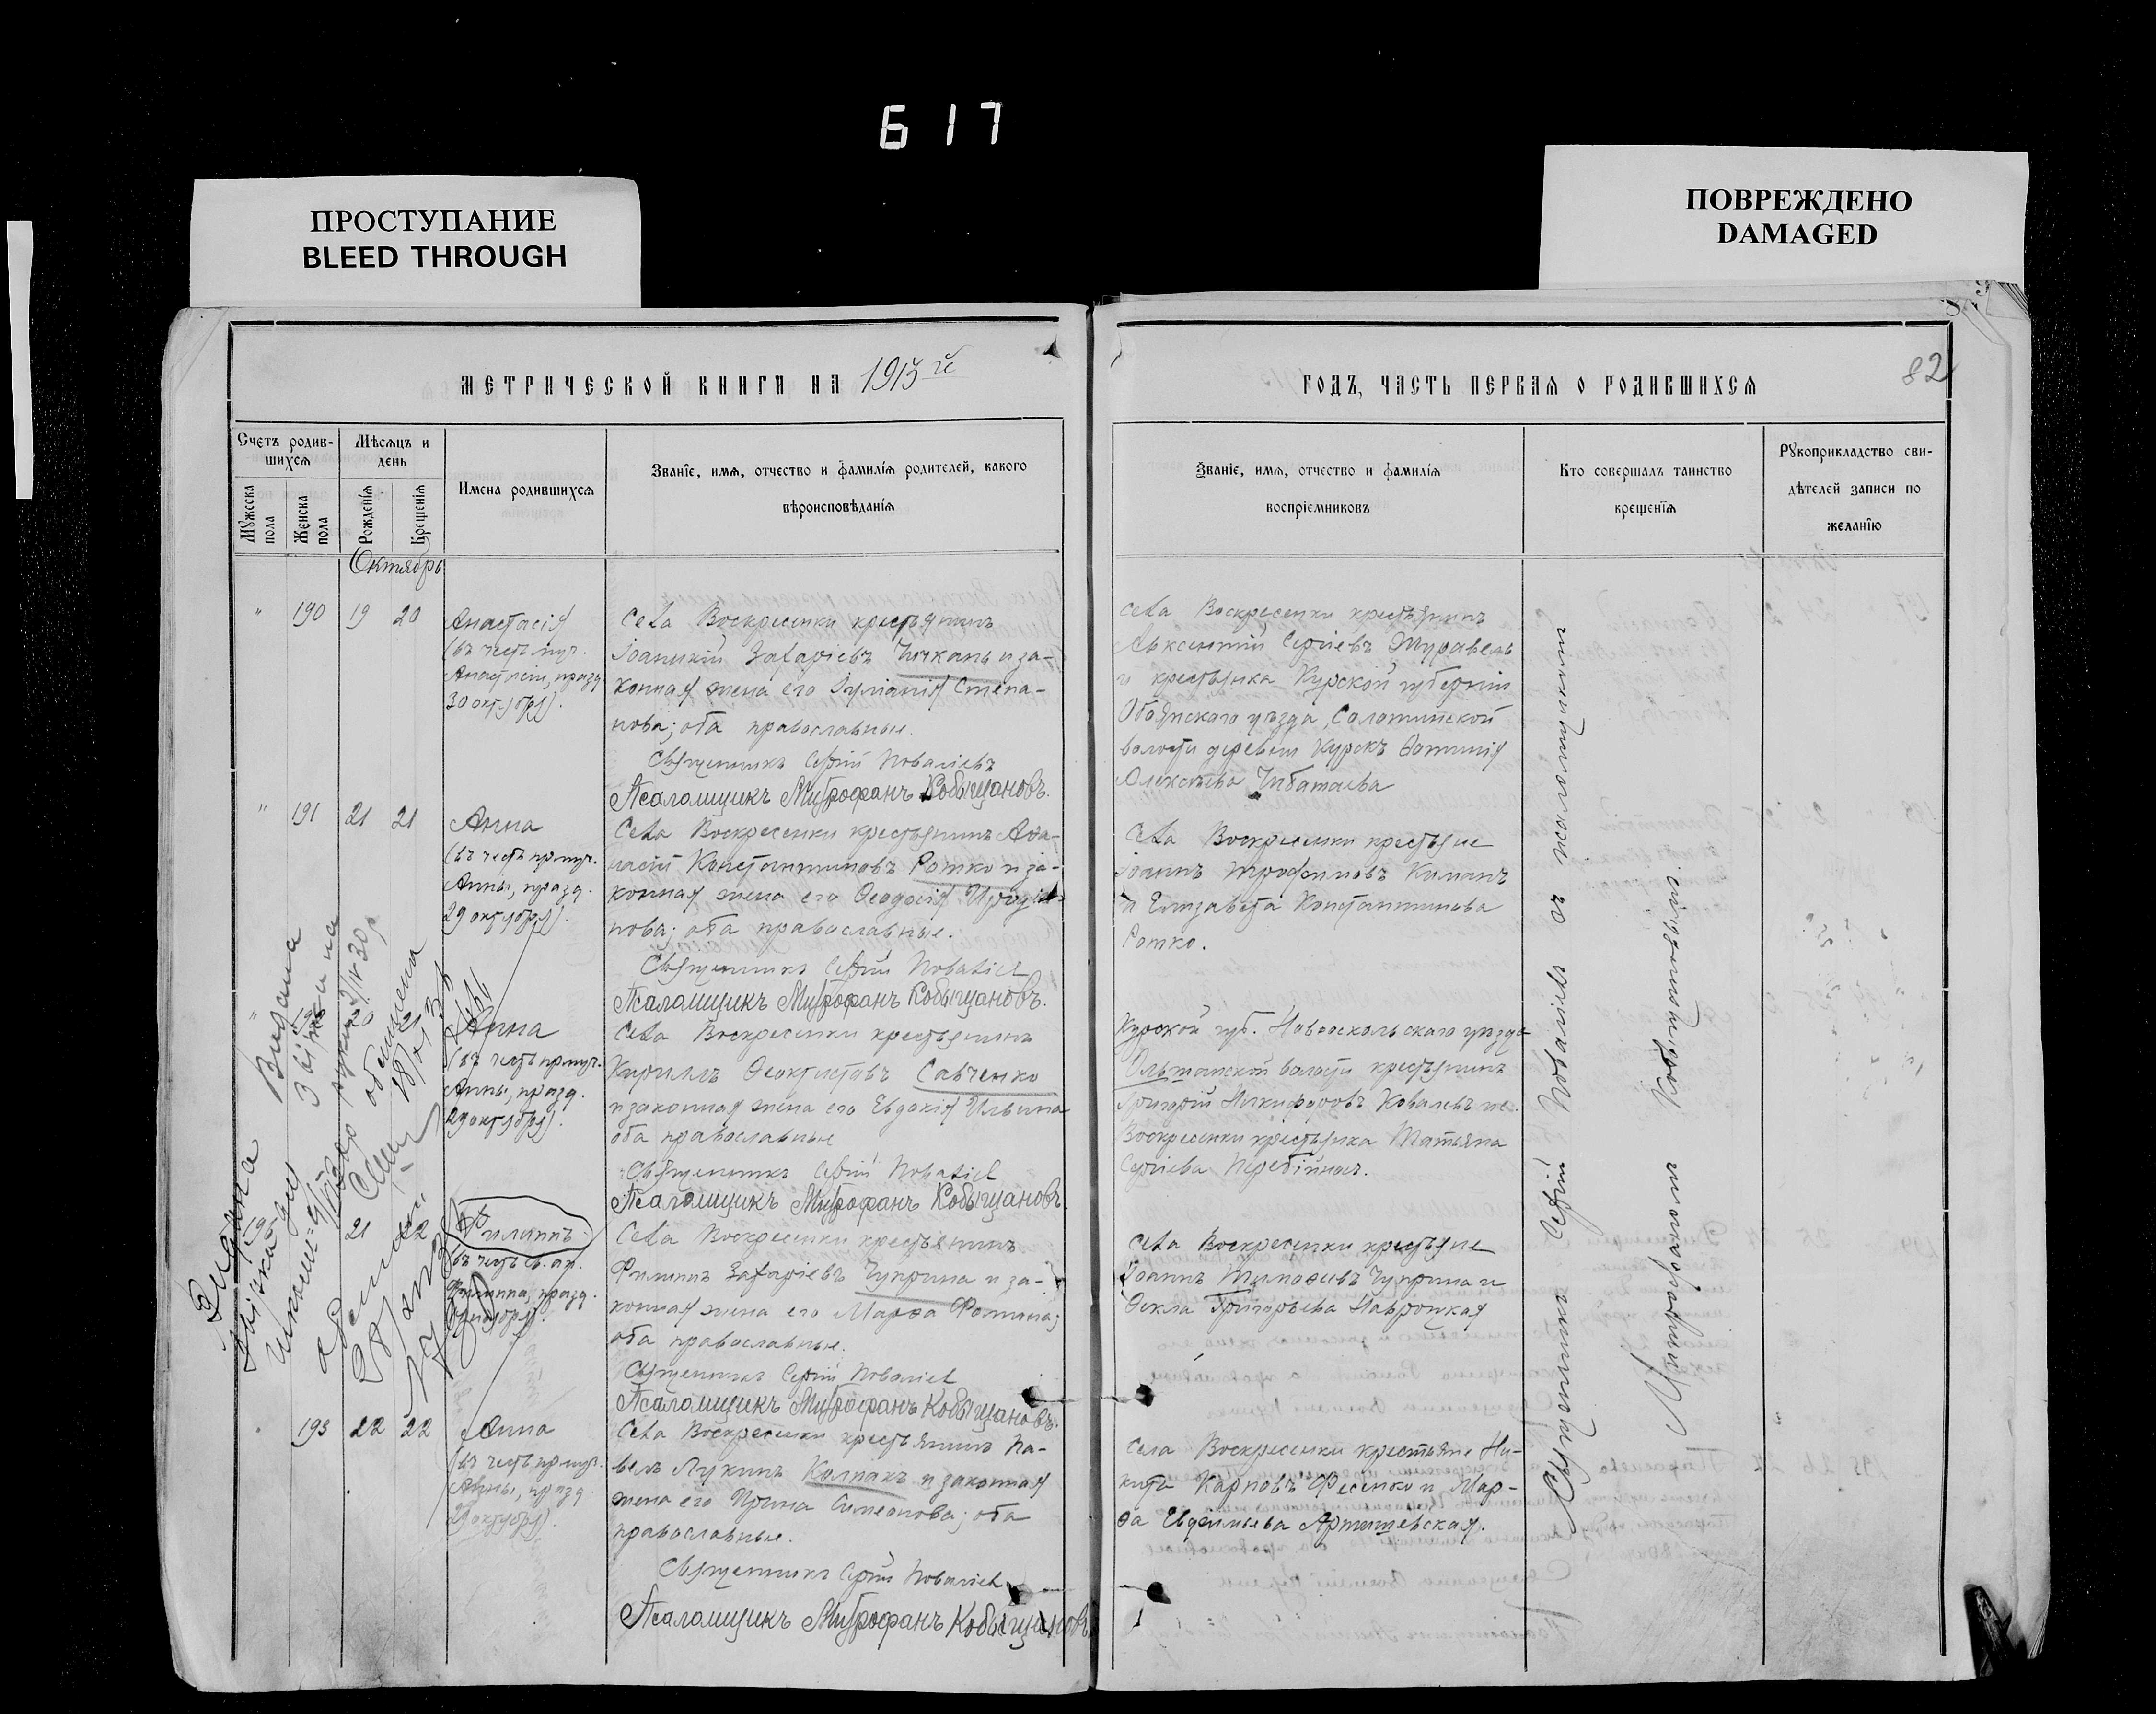 617
ПРОСТУПАНИЕ
BLEED THROUGH
ПОВРЕЖДЕНО
DAMAGED
МЕТРИЧЕСКОЙ КНИГИ НА 1915 й
ГОДЪ, ЧАСТЬ ПЕРВАЯ О РОДИВШИХСЯ
82
Счетъ родив-
шихся
Мѣсяцъ и
день
Имена родившихся
Званіе, имя, отчество и фамилія родителей, какого
вѣроисповѣданія
Мужеска
пола
Женска
пола
Рожденія
Крещенія
Званіе, имя, отчество и фамилія
воспріемниковъ
Кто совершалъ таинство
крещенія
Рукоприкладство сви-
дѣтелей записи по
желанію
Октябрь
" 190 19 20
Анастасія
(въ честь муч.
Анастасіи, празд.
30 октября).
Села Воскресенки крестьянинъ
Іоанникій Захаріевъ Чичкань и за-
конная жена его Іуліанія Степа-
нова; оба православные.
Священникъ Сергій Поваліевъ
Псаломщикъ Митрофанъ Кобыщановъ.
села Воскресенки крестьянинъ
Авксентій Сергіевъ Журавель
и крестьянка Курской губерніи
Обоянскаго уѣзда, Солотинской
волости деревни Курскъ Фотинія
Алексѣева Чубатаева
" 191 21 21
Анна
(въ честь пр. муч.
Анны, празд.
29 октября).
Села Воскресенки крестьянинъ Аѳа-
насій Константиновъ Ротко и за-
конная жена его Ѳеодосія Иродіо-
нова; оба православные.
Священникъ Сергій Поваліевъ
Псаломщикъ Митрофанъ Кобыщановъ.
Села Воскресенки крестьяне
Іоаннъ Трофимовъ Киманъ
и Елизавета Константинова
Ротко.
" 192 20 21
Анна
(въ честь пр. муч.
Анны, празд.
29 октября).
Села Воскресенки крестьянинъ
Кириллъ Ѳеоктистовъ Савченко
и законная жена его Евдокія Ильина
оба православные
Священникъ Сергій Поваліевъ
Псаломщикъ Митрофанъ Кобыщановъ.
Курской губ. Новооскольскаго уѣзда
Ольшанской волости крестьянинъ
Григорій Никифоровъ Ковалевъ и с.
Воскресенки крестьянка Татьяна
Сергіева Перебійносъ.
21 22
Филиппъ
(въ честь св. ап.
Филиппа, празд.
Села Воскресенки крестьянинъ
Филиппъ Захаріевъ Чуприна и за-
конная жена его Марѳа Фотина;
оба православные.
Священникъ Сергій Поваліевъ
Псаломщикъ Митрофанъ Кобыщановъ.
Села Воскресенки крестьяне
Іоаннъ Тимоѳеевъ Чуприна и
Ѳекла Григорьева Навроцкая
193 22 22
Анна
(въ честь пр. муч.
Анны, празд.
29 октября).
Села Воскресенки крестьянинъ Па-
велъ Лукинъ Колпакъ и законная
жена его Ирина Симеонова; оба
православные.
Священникъ Сергій Поваліевъ
Псаломщикъ Митрофанъ Кобыщановъ
Села Воскресенки крестьяне Ни-
кита Карповъ Фесенко и Мар-
ѳа Евѳимьева Артишевская.
Священникъ Сергій Поваліевъ съ псаломщикомъ
Митрофаномъ Кобыщановымъ.
Видана
Видана